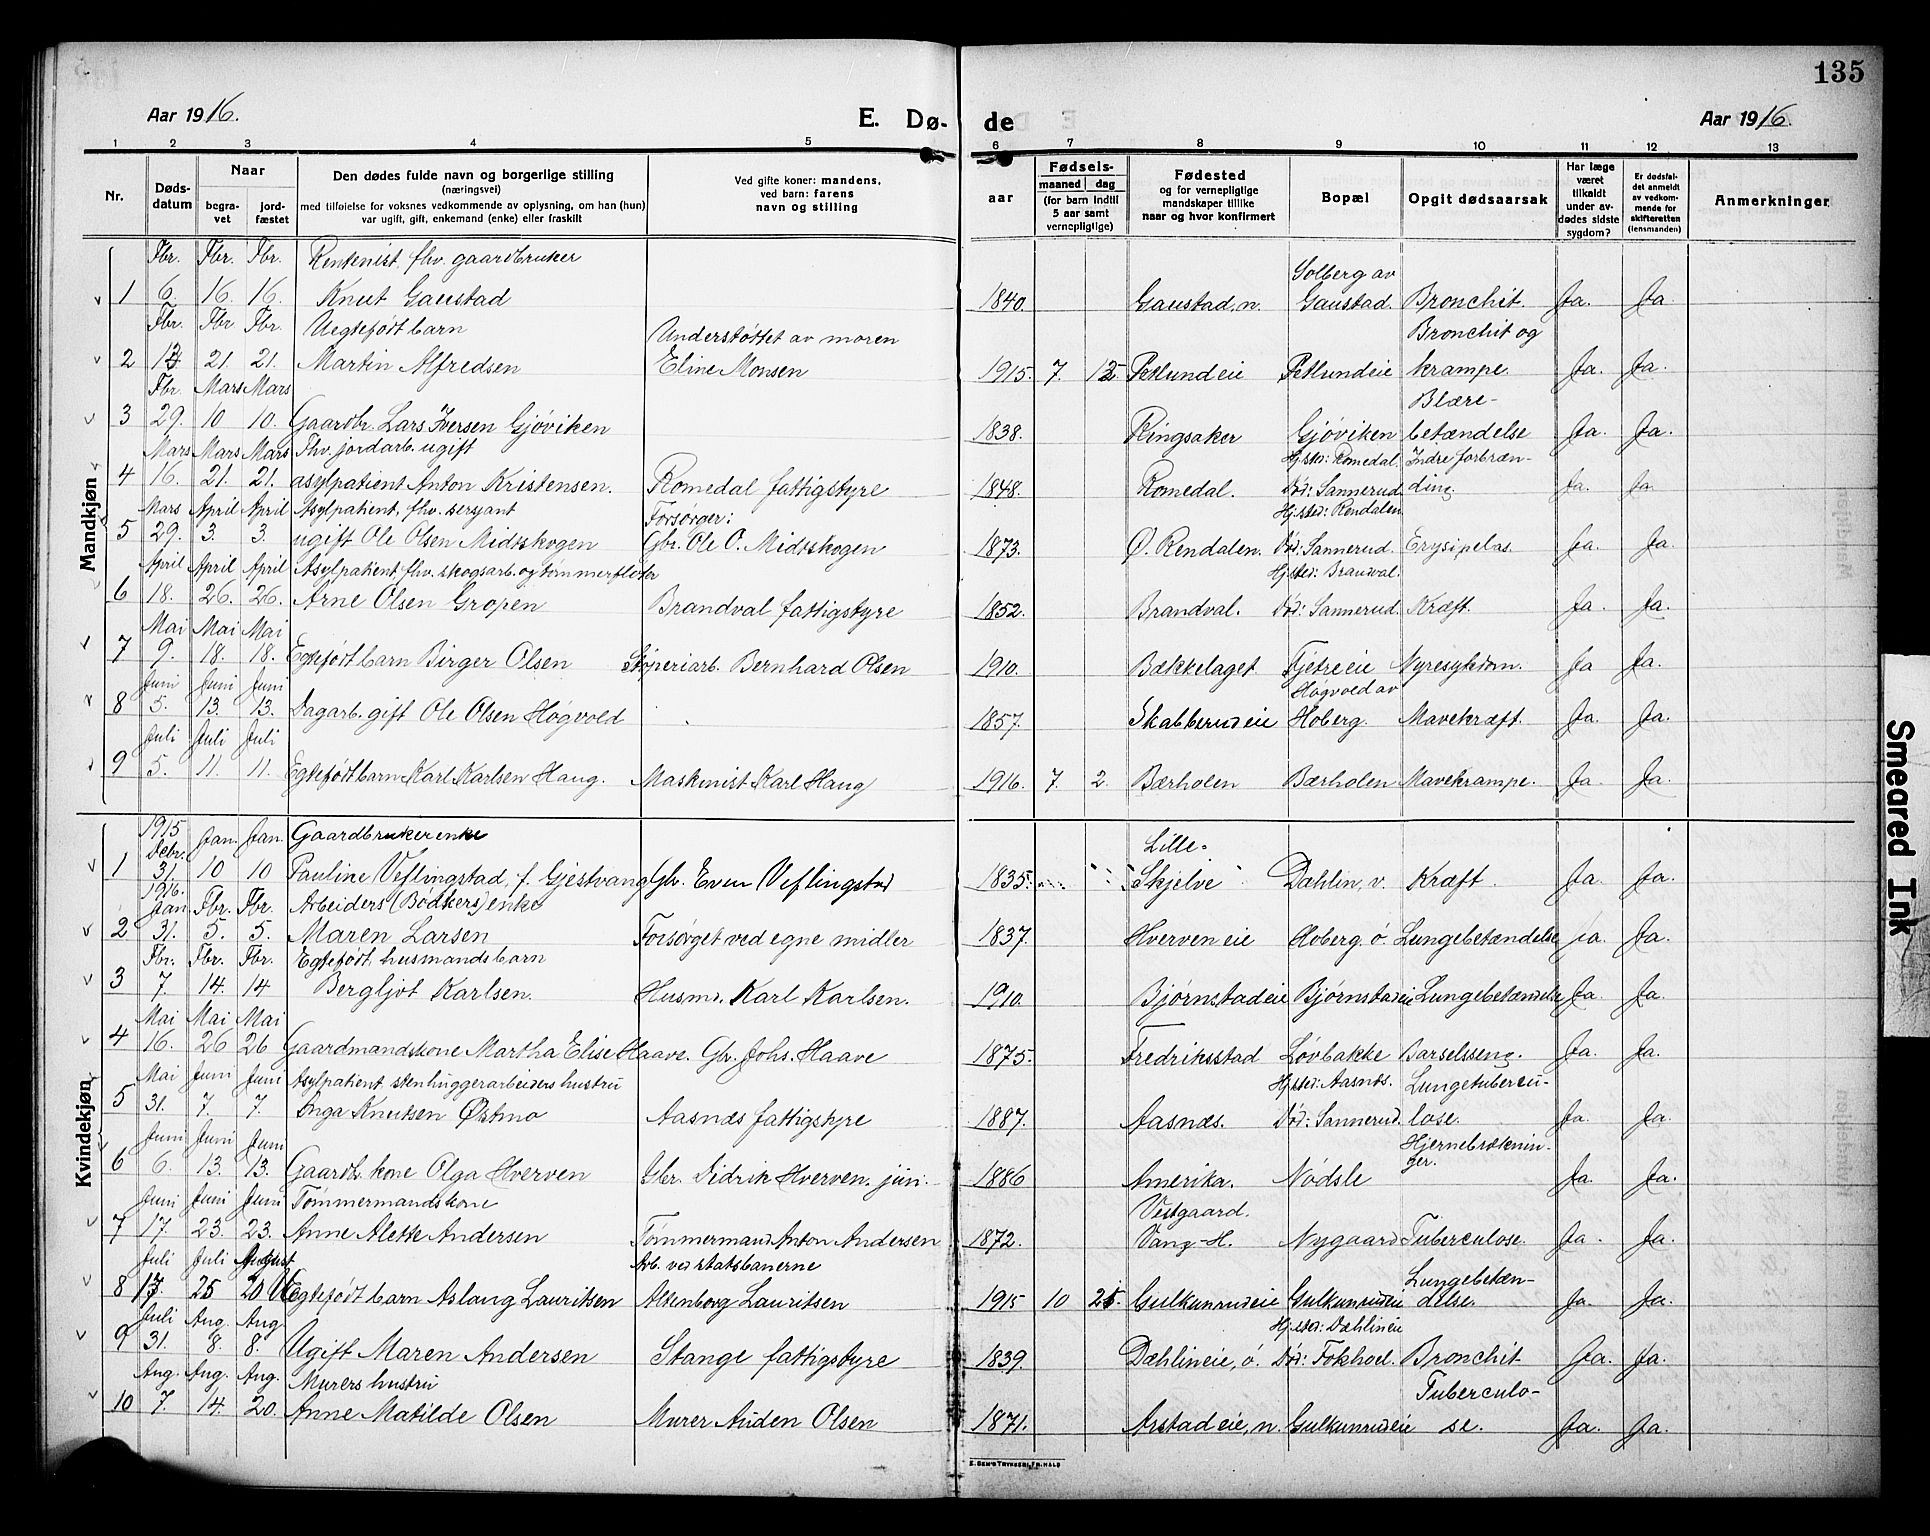 135
Aar 1916.
E. Dø-
de
Aar 1916.
1 2 3 4 5 6 7 8 9 10 11 12 13
Nr.
Døds-
datum
Naar
begra-
vet
jord-
fæstet
Den dødes fulde navn og borgerlige stilling
(næringsvei)
med tilføielse for voksnes vedkommende av oplysning, om han (hun)
var ugift, gift, enkemand (enke) eller fraskilt
Ved gifte koner: mandens,
ved barn: farens
navn og stilling
Fødsels-
aar
maaned
dag
(for barn indtil
5 aar samt
vernepligtige)
Fødested
og for vernepligtige
mandskaper tillike
naar og hvor konfirmert
Bopæl
Opgit dødsaarsak
Har læge
været
tilkaldt
under av-
dødes sidste
sygdom?
Er dødsfal-
det anmeldt
av vedkom-
mende for
skifteretten
(lensmanden)
Anmerkninger
Mandkjøn
Fbr. Fbr. Fbr. Rentenist, fhv. gaardbruker Solberg av
1 6. 16. 16. Knut Gaustad 1840. Gaustad, n. Gaustad. Bronchit. Ja. Ja
Fbr. Fbr. Fbr. Uegtefødt barn Understøttet av moren Bronchit og
2 13 21. 21. Martin Alfredsen Eline Monsen 1915. 7. 12 Petlundeie Petlundeie krampe. Ja. Ja.
Fbr. Mars Mars Blære-
3 29. 10 10. Gaardbr. Lars Iversen Gjøviken 1838. Ringsaker Gjøviken betændelse Ja. Ja.
Mars Mars Mars Fhv. jordarb. ugift Hjsted: Romedal. Indre forbræn-
4 16. 21. 21. asylpatient Anton Kristensen. Romedal fattigstyre 1848. Romedal. Død: Sannerud ding. Ja. Ja.
Mars April April Asylpatient, fhv. sersjant Forsørger: Hjsted: Rendalen
5 29. 3. 3. ugift Ole Olsen Midtskogen Gbr. Ole O. Midtskogen 1873. Ø. Rendalen. Død: Sannerud. Erysipelas. Ja. Ja.
April April April Asylpatient fhv. skogsarb. og tømmerfløter Hjsted: Brandval.
6 18. 26. 26. Arne Olsen Gropen Brandval fattigstyre 1852. Brandval. Død: Sannerud. Kræft. Ja. Ja.
Mai Mai Mai
7 9. 18. 18. Egtefødt barn Birger Olsen Støperiarb. Bernhard Olsen 1910. Bækkelaget Tjetreeie Nyresykdom. Ja Ja.
Juni Juni Juni Høgvold av
8 5. 13. 13. Dagarb. gift Ole Olsen Høgvold 1857. Skabberudeie Hoberg. Mavekræft. Ja. Ja.
Juli Juli Juli
9 5. 11. 11. Egtefødt barn Karl Karlsen Haug. Maskinist Karl Haug 1916. 7. 2. Bærholen Bærholen Mavekrampe. Ja. Ja.
Kvindekjøn
1915 Debr. Jan. Jan. Gaardbrukerenke Lille-
1 31. 10 10 Pauline Veflingstad, f. Gjestvang Gbr. Even Veflingstad 1835. Skjelve Dæhlin, v. Kræft. Ja. Ja.
1916. Jan Fbr. Fbr. Arbeiders (Bødkers) enke
2 31. 5. 5. Maren Larsen Forsørget ved egne midler 1837. Hverven eie Hoberg. ø. Lungebetændelse ja. Ja.
Fbr. Fbr. Fbr. Egtefødt husmandsbarn
3 7 14. 14 Bergljot Karlsen. Husmd. Karl Karlsen. 1910. Bjørnstadeie Bjørnstadeie Lungebetændelse Ja. Ja.
Mai Mai Mai
4 16. 26 26 Gaardmandskone Martha Elise Haave. Gbr. Johs. Haave 1875. Fredriksstad Løvbakke Barselsseng. Ja. Ja.
Mai Juni Juni Asylpatient, stenhuggerarbeiders hustru Hjsted: Aasnæs. Lungetubercu-
5 31. 7. 7. Inga Knutsen Østmo Aasnæs fattigstyre 1887. Aasnæs. Død: Sannerud. lose. Ja. Ja.
Juni Juni Juni Hjernebrækmin-
ger.
6 6. 13. 13. Gaardbr. kone Olga Hverven Gbr. Didrik Hverven, jun. 1886 Amerika. Nødsle Ja. Ja.
Juni Juni Juni Tømmermandskone Vestgaard.
7 17. 23. 23. Anne Alette Andersen Tømmermand Anton Andersen 1872. Vang-H. Nygaard Tuberculose. Ja. Ja.
Juli Juli August Arb. ved statsbanerne Lungebetæn-
8 17. 25 20 Egtefødt barn Aslaug Lauritsen Altenborg Lauritsen 1915 10 25. Gulkunrudeie Gulkunrudeie delse. Ja. Ja.
Juli Aug. Aug Hjsted: Dæhlineie
9 31. 8. 8. Ugift Maren Andersen Stange fattigstyre 1839. Dæhlineie, ø. Død: Fokhoel. Bronchit Ja. Ja.
Aug. Aug. Aug. Murers hustru Tuberculo-
10 7. 14. 20. Anne Matilde Olsen Murer Auden Olsen 1871. Arstad eie, n. Gulkunrudeie se. Ja. Ja.
Smeared Ink